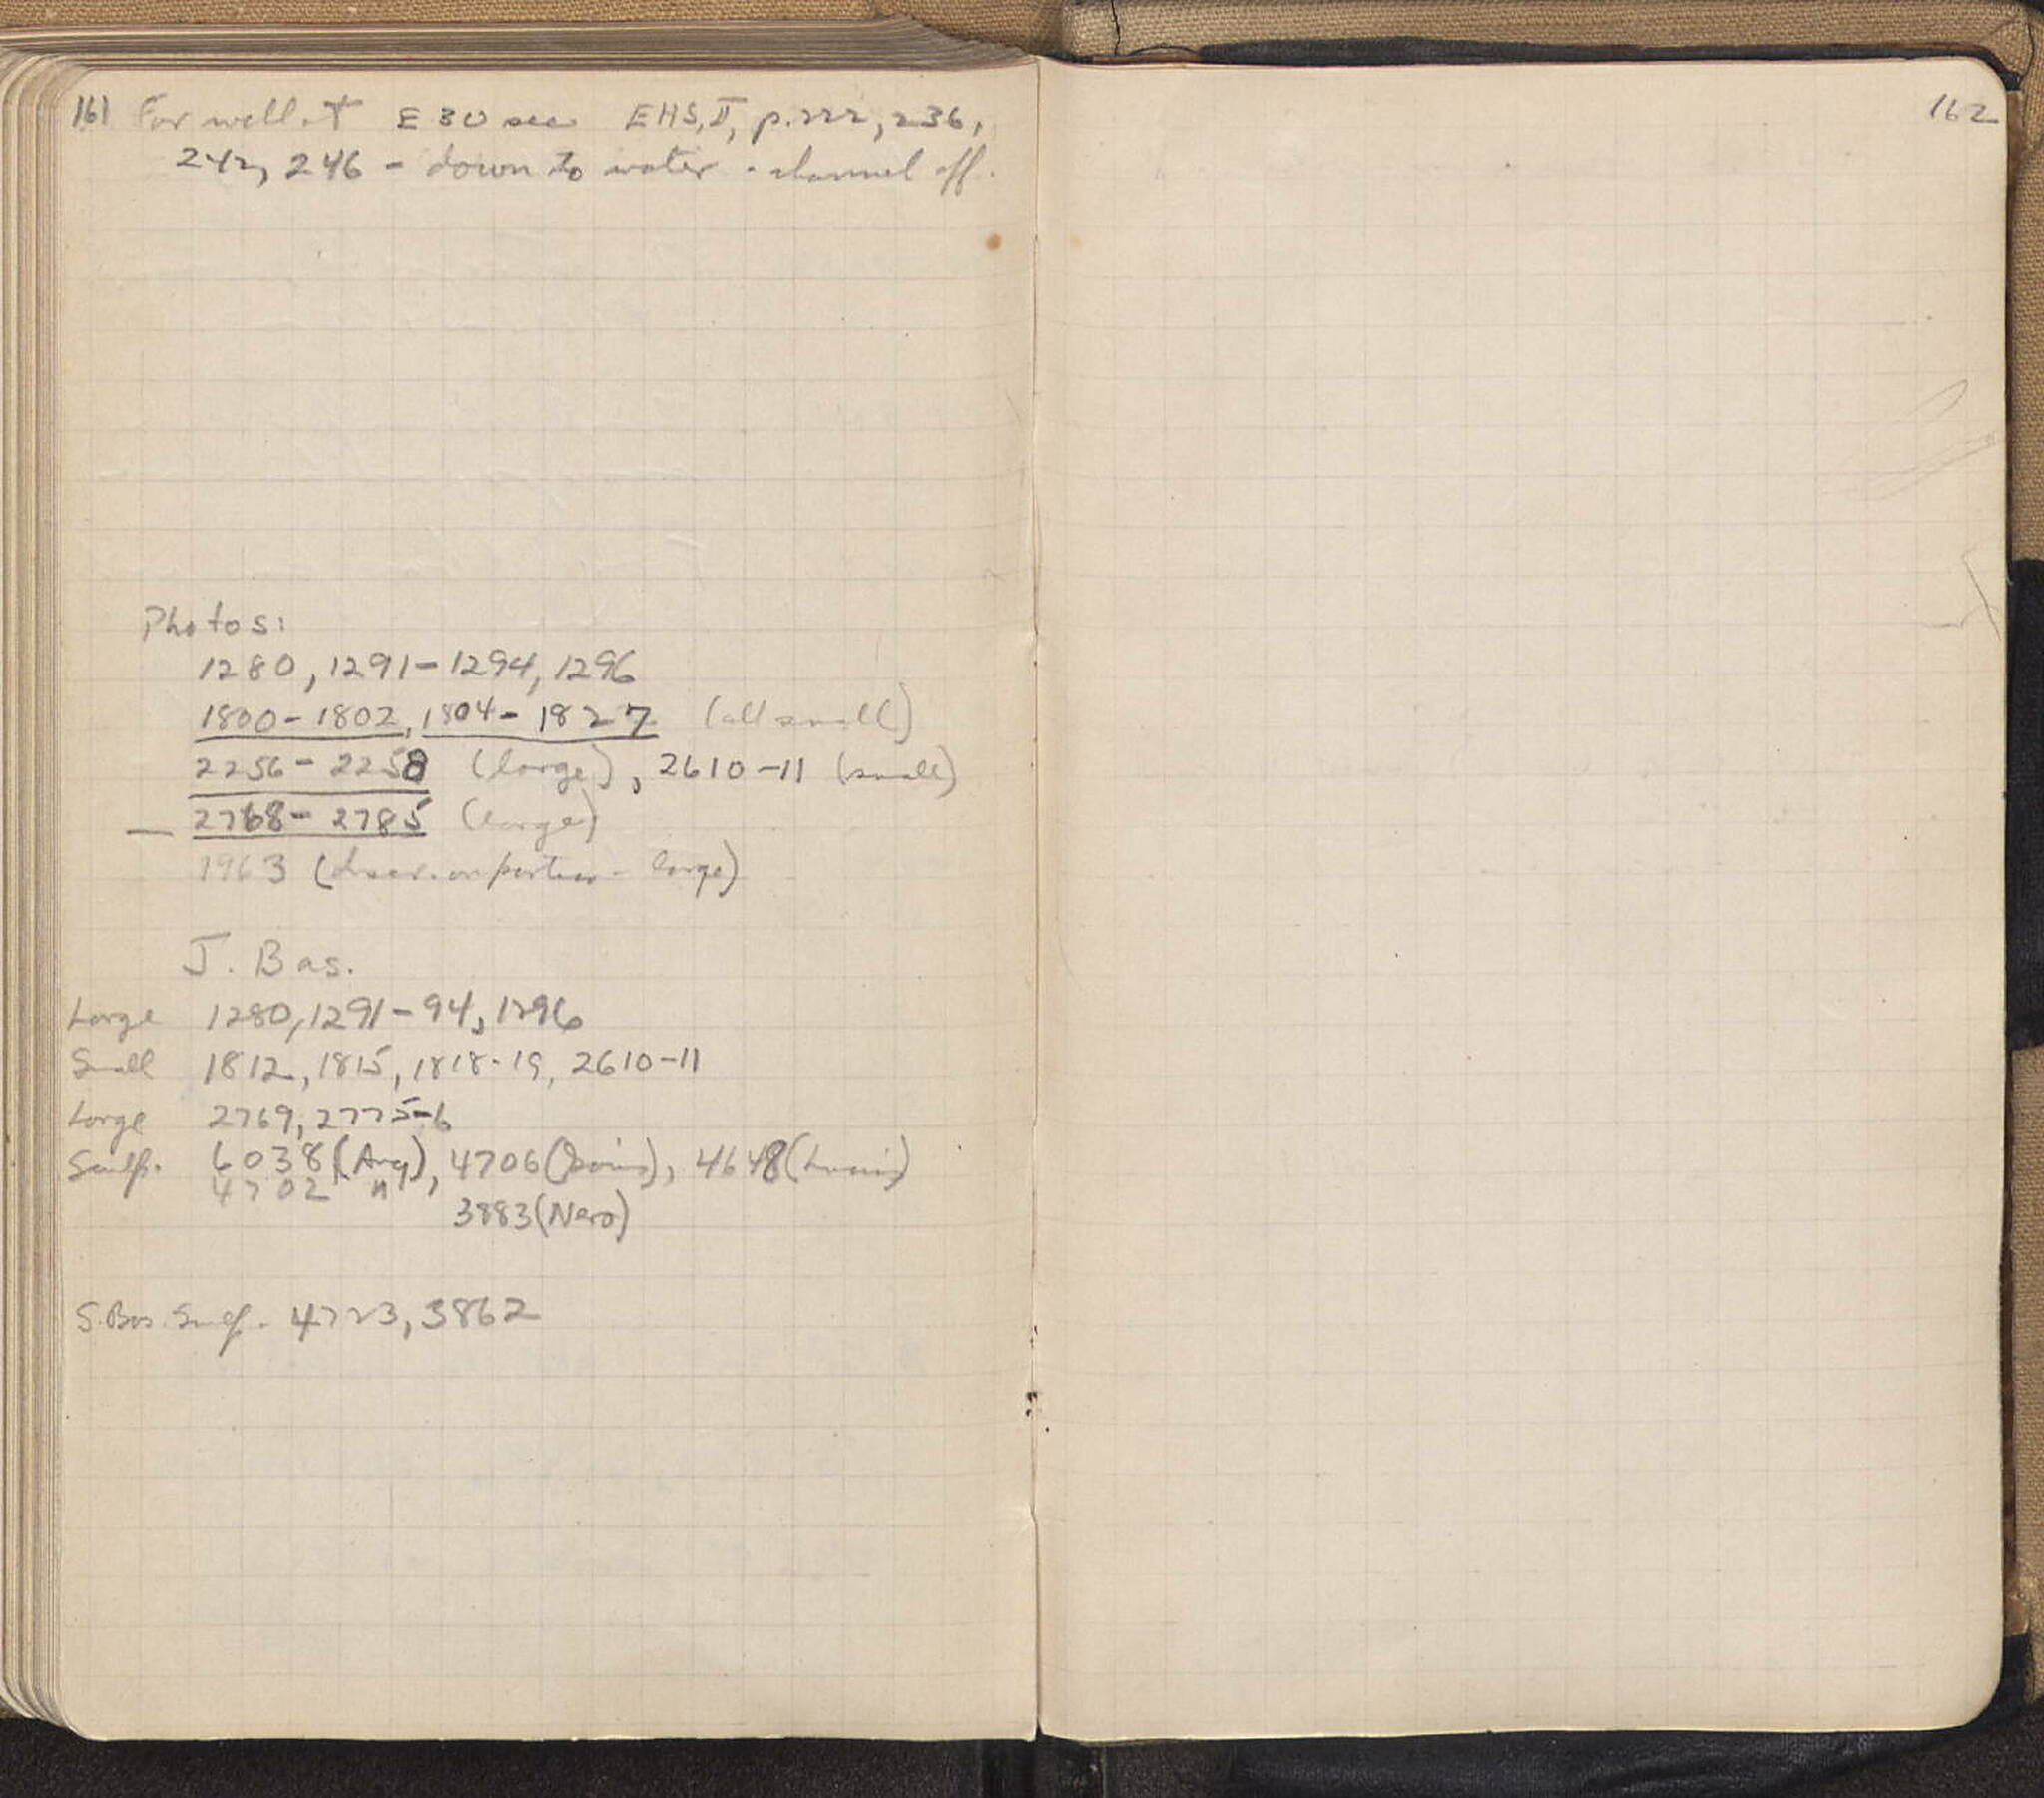 161 For well at E 30 see EHS, II, p. 222, 236,
242, 246 - down to water - channel off.
162
Photos:
1280, 1291-1294, 1296
1800-1802, 1804-1827 (all small)
2256-2258 (large), 2610-11 (small)
— 2768-2785 (large)
1963 (inscr. on portico - large)
J. Bas.
Large 1280, 1291-94, 1296
Small 1812, 1815, 1818-19, 2610-11
Large 2769, 2775-6
Sculp. 6038 (Aug), 4706 (Gaius), 4648 (Lucius)
4702 "
3883 (Nero)
S. Bas. Sculp. 4723, 3862